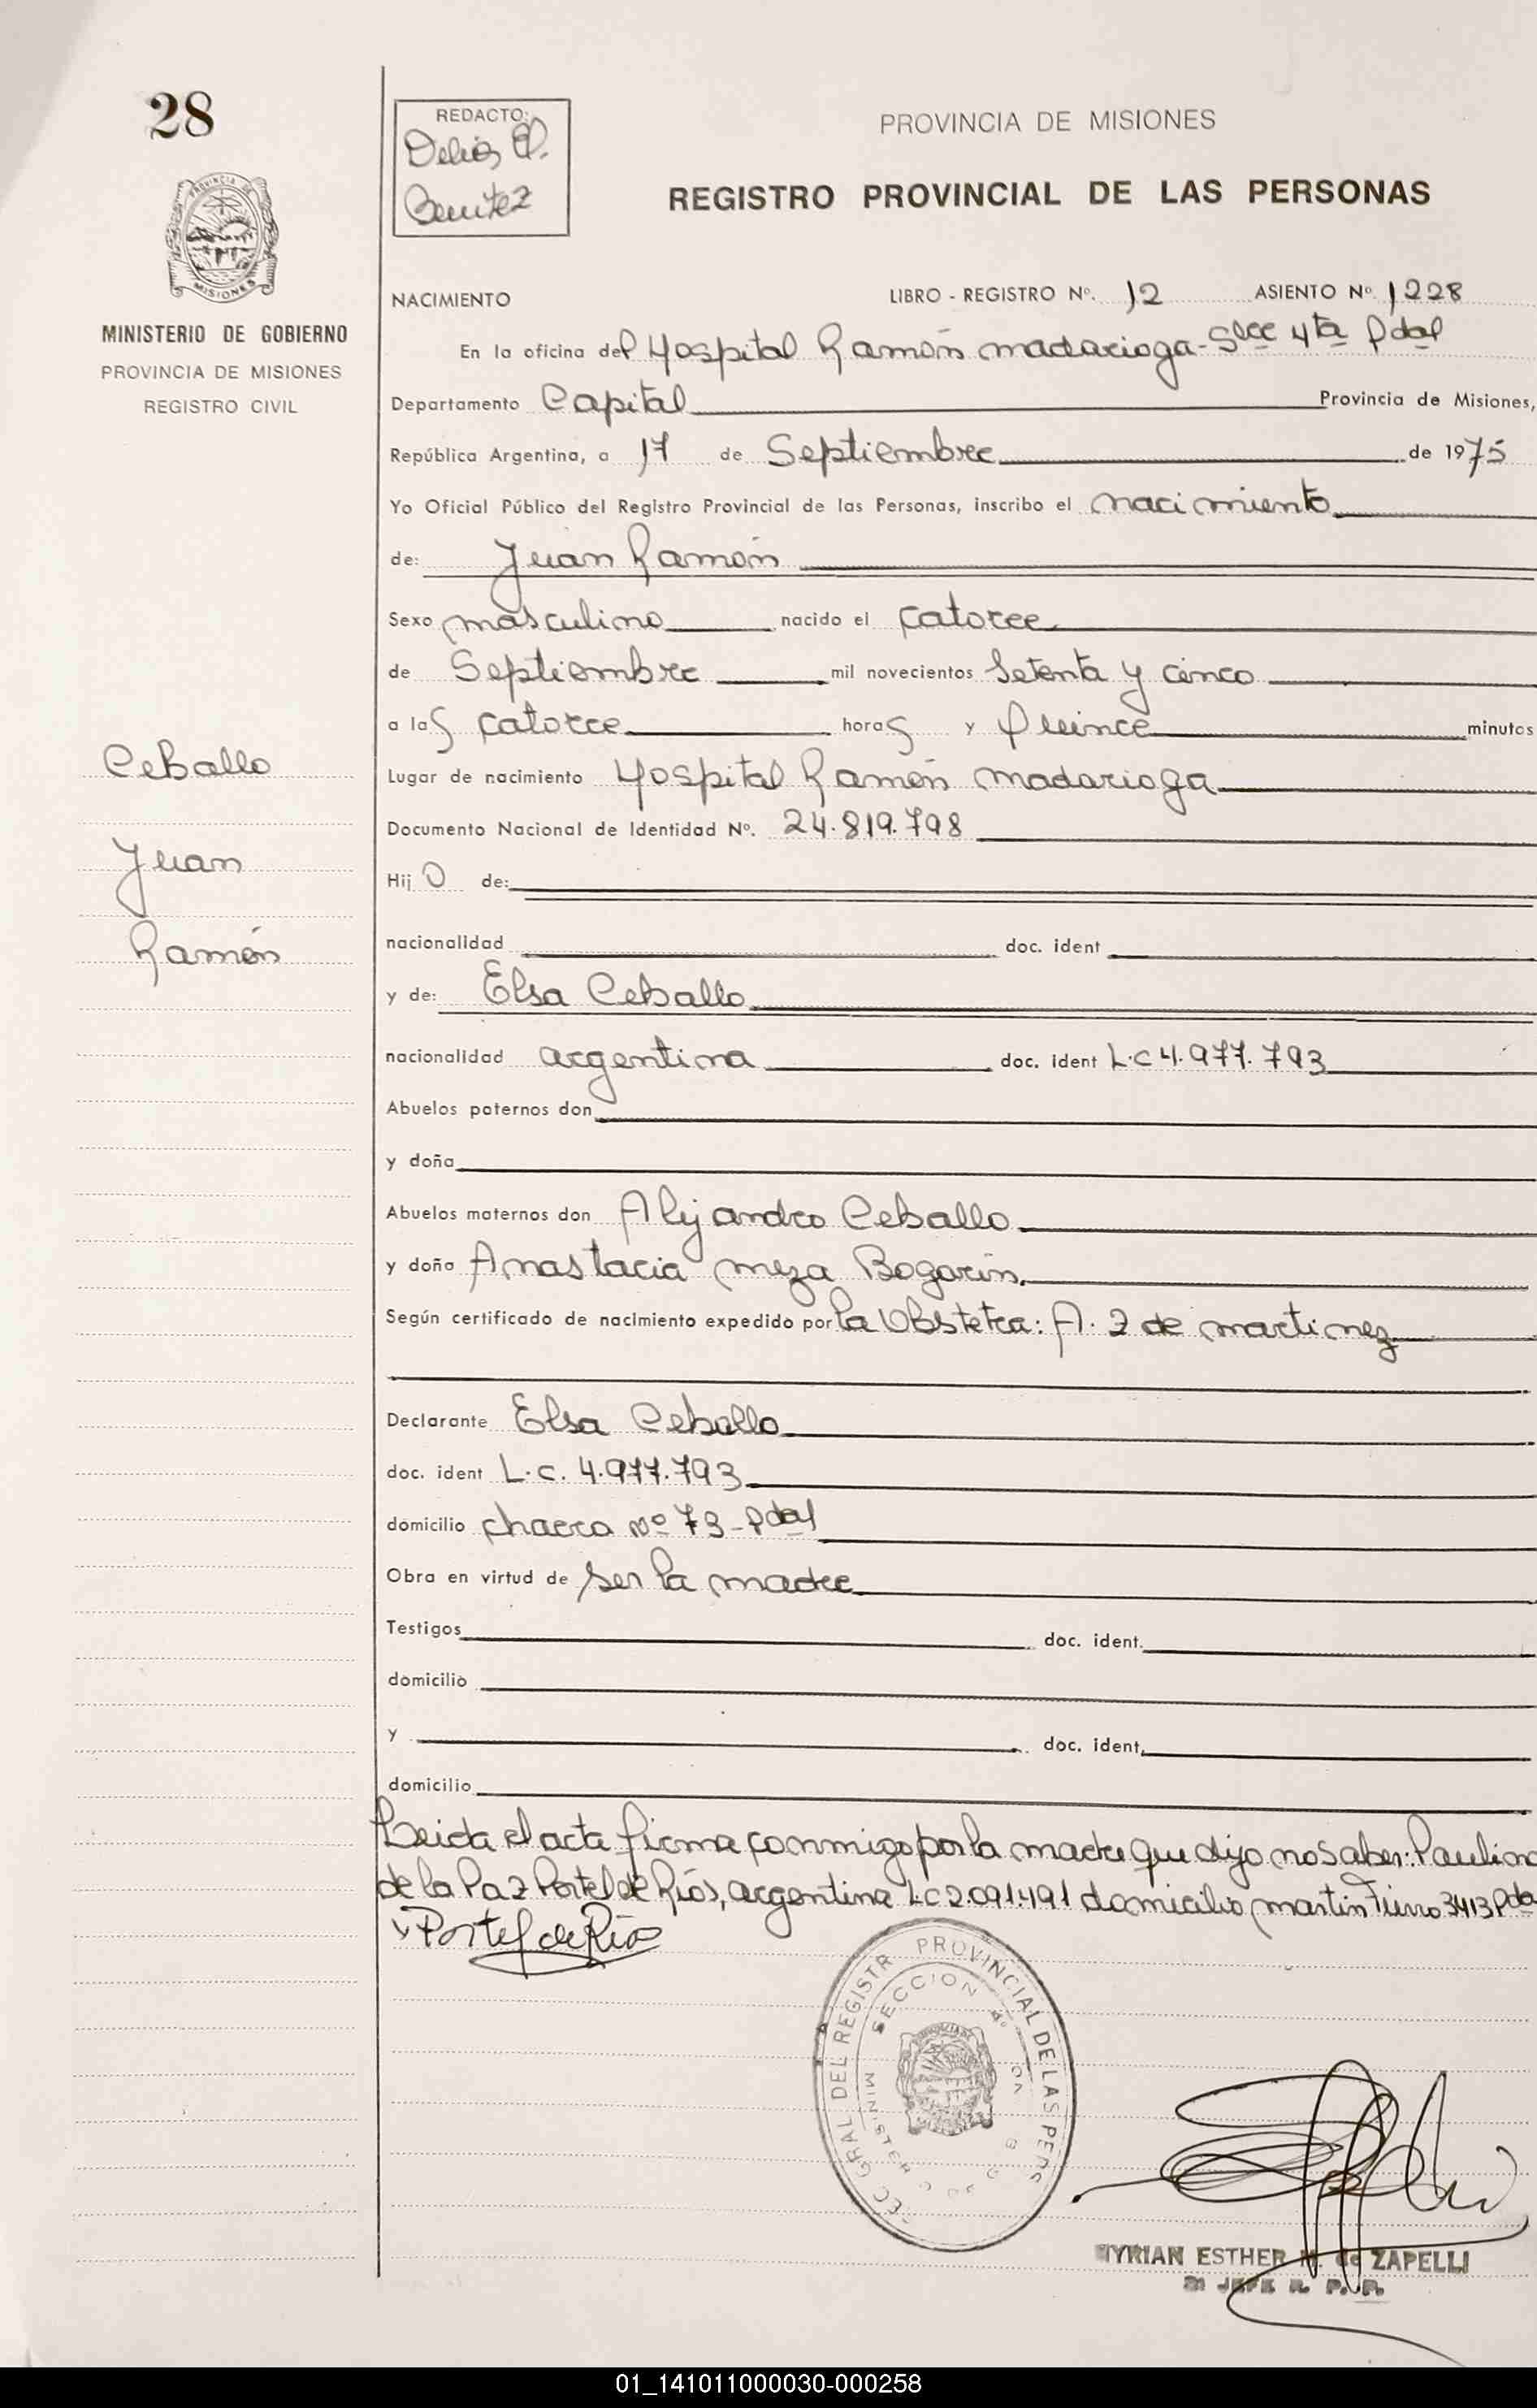 28
REDACTO:
Delia
Benitez
PROVINCIA DE MISIONES
REGISTRO PROVINCIAL DE LAS PERSONAS
PROVINCIA DE
MISIONES
MINISTERIO DE GOBIERNO
PROVINCIA DE MISIONES
REGISTRO CIVIL
NACIMIENTO
LIBRO - REGISTRO Nº. 12 ASIENTO Nº. 1228
En la oficina del Hospital Ramón madarioga - Slcc 4ta Pdal
Departamento Capital Provincia de Misiones,
República Argentina, a 17 de Septiembre de 1975
Yo Oficial Público del Registro Provincial de las Personas, inscribo el nacimiento
de: Juan Ramón
Sexo masculino nacido el catorce
de Septiembre mil novecientos Setenta y cinco
a las catorce horas y quince minutos
Ceballo
Juan
Ramón
Lugar de nacimiento Hospital Ramón madarioga
Documento Nacional de Identidad Nº. 24.819.798
Hijo de:
nacionalidad doc. ident
y de: Elsa Ceballo
nacionalidad argentina doc. ident L.C 4.977.793
Abuelos paternos don
y doña
Abuelos maternos don Alejandro Ceballo
y doña Anastacia meza Bogarin.
Según certificado de nacimiento expedido por la Obstetra: A. Z de martinez
Declarante Elsa Ceballo
doc. ident L.C. 4.977.793
domicilio chacra nº 73 - Pdal
Obra en virtud de ser la madre
Testigos doc. ident.
domicilio
y doc. ident.
domicilio
Leida el acta firma conmigo por la madre que dijo no saber: Paulina
de la Paz Portel de Ríos, argentina L.C 2.091.491 domicilio martin Fierro 3413 Pda
Portel de Ríos
GRAL DEL REGISTR PROVINCIAL DE LAS PERS
SECCION
MYRIAN ESTHER M. de ZAPELLI
JEFE R. P. P.
01_141011000030-000258